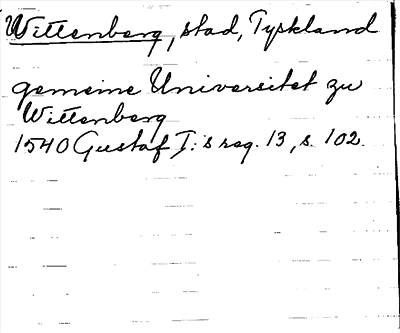 Wittenberg, stad, Tyskland
gemeine Universitet zu
Wittenberg
1540 Gustaf I:s reg. 13, s. 102.